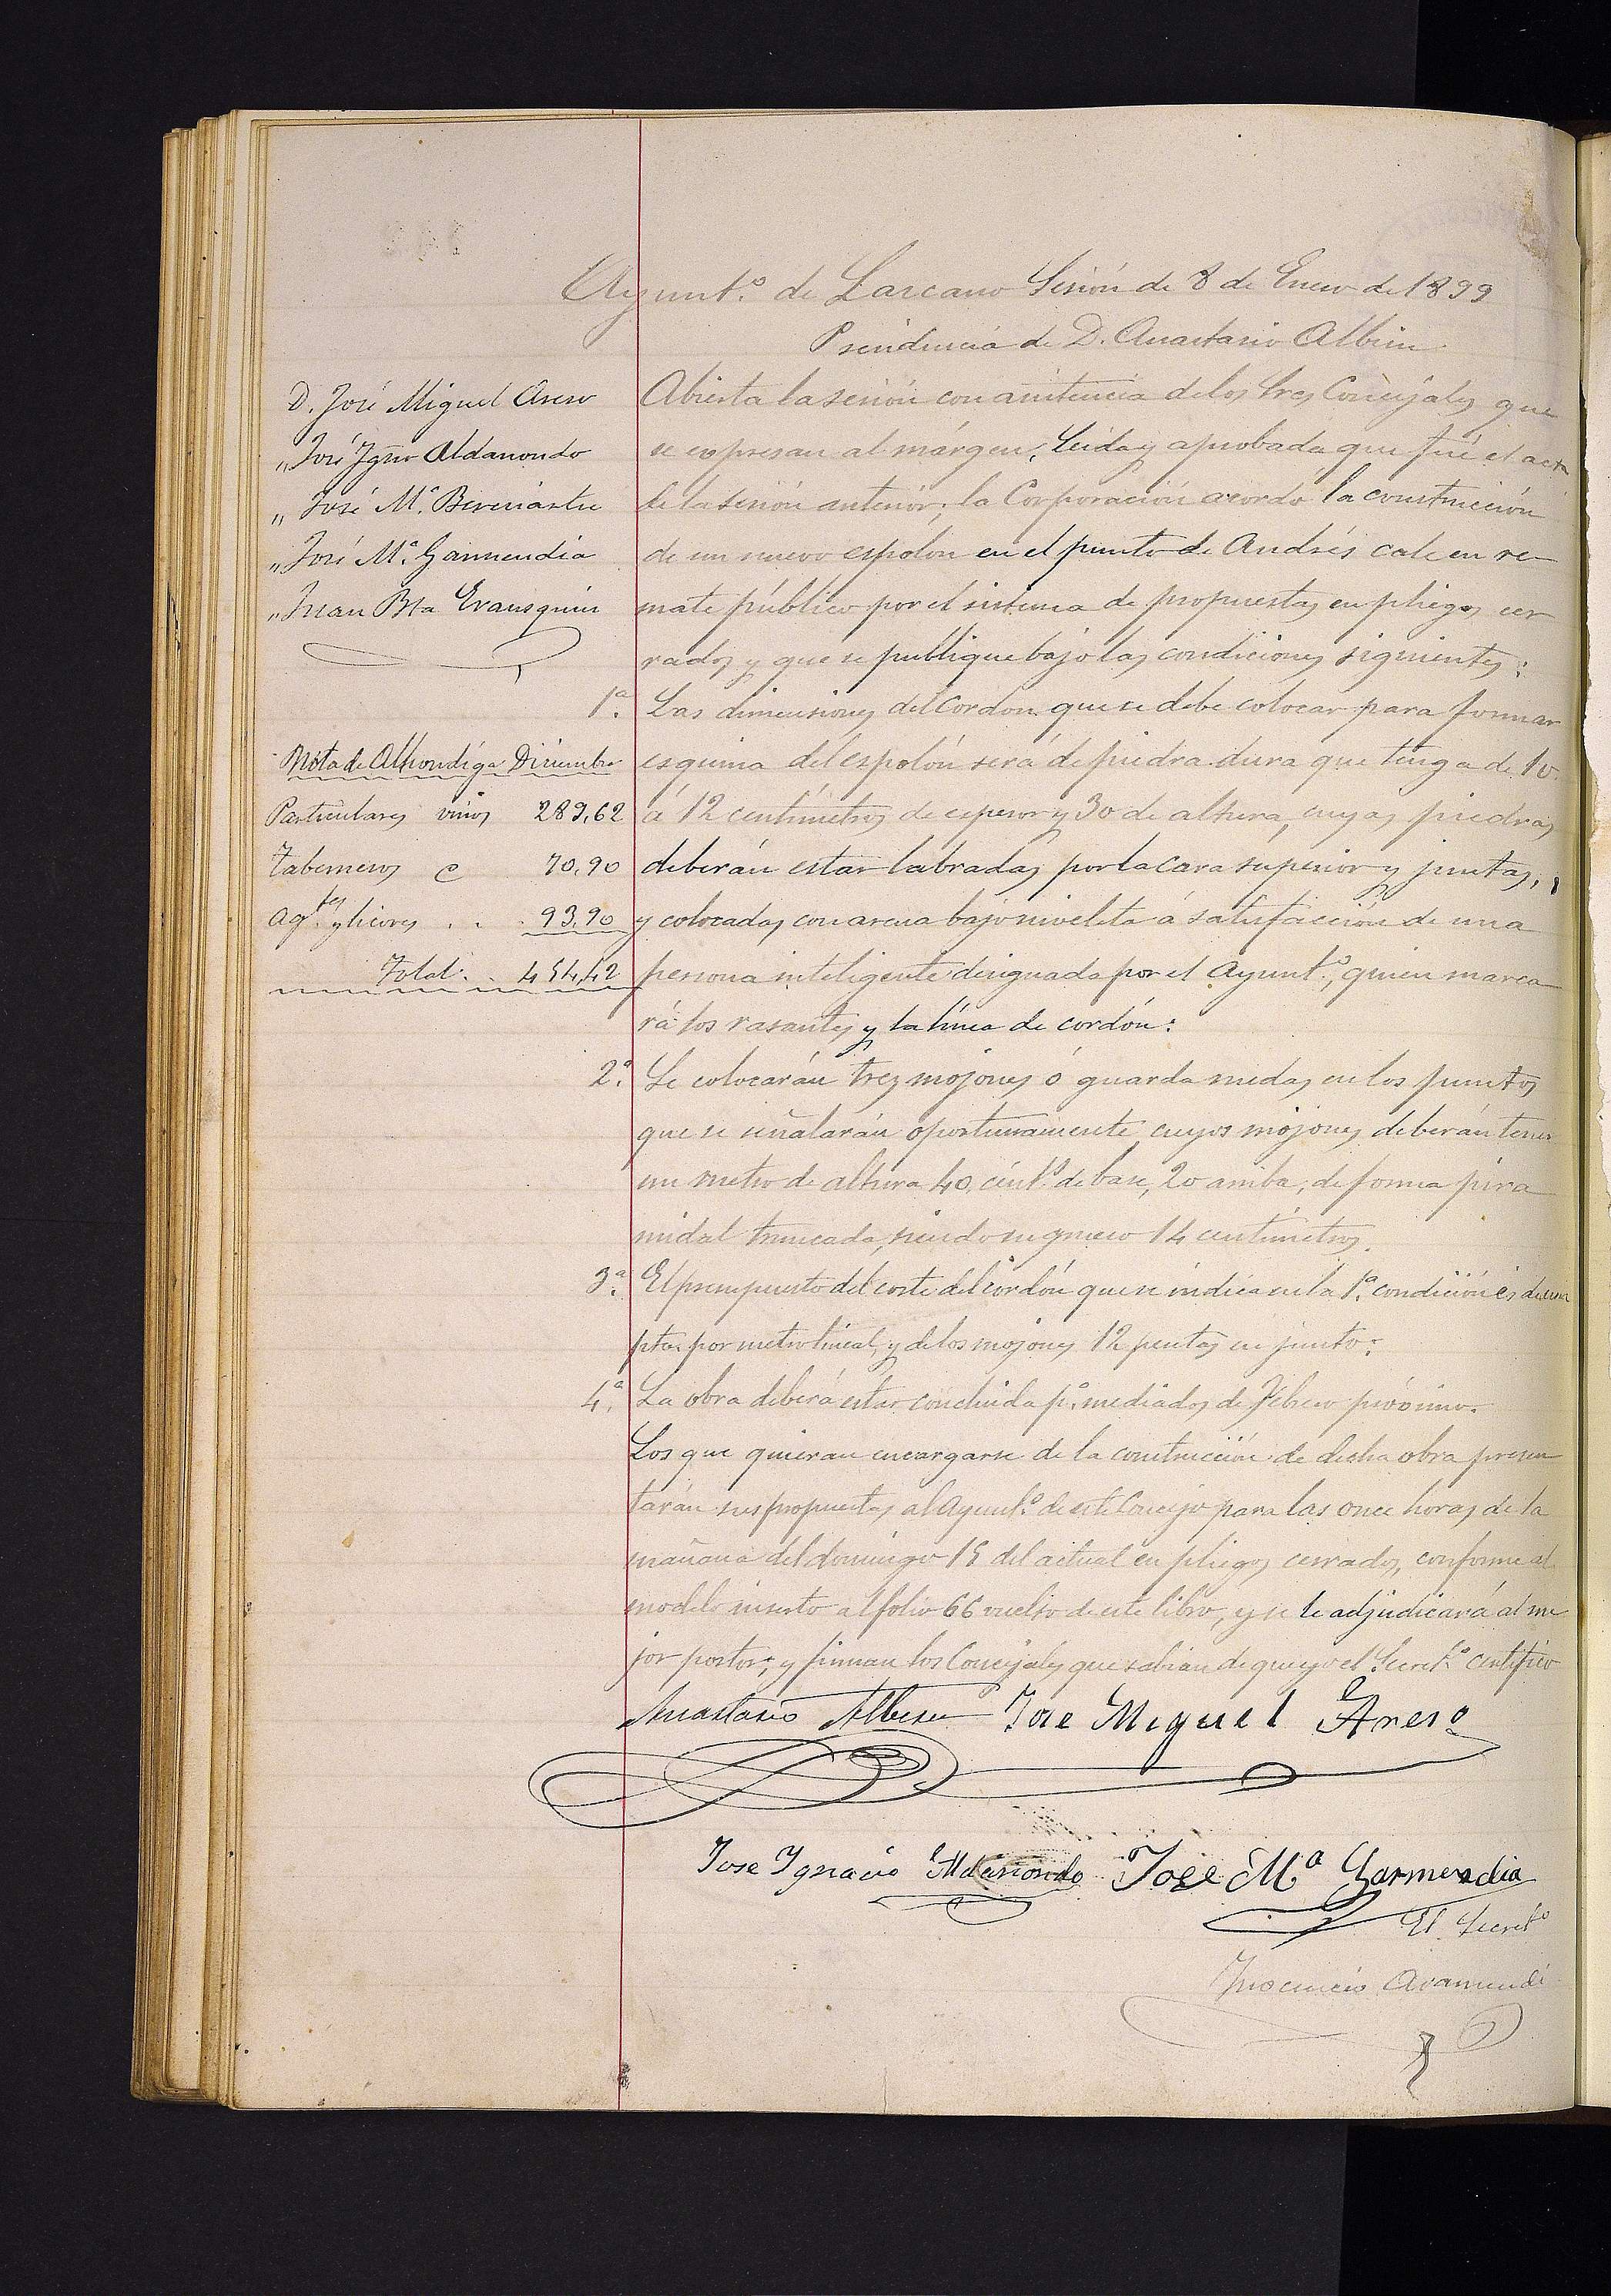 Ayunt.º de Lazcano Sesión de 8 de Enero de 1899
Presidencia de D. Anastasio Albisu
D. José Miguel Areso
„ José Ign.º Aldanondo
„ José M.ª Bereciartu
„ José M.ª Garmendia
„ Juan Bta Erausquin
Nota de Alhondíga Diciembre
Particulares vinos 289,62
Taberneros 70,90
Ag.tes y licores . . 93,90
Total . . 454,42
Abierta la sesión con asistencia de los tres Concejales que
se expresan al márgen; leida y aprobada que fué el acta
de la sesión anterior; la Corporación acordó la construcción
de un nuevo espolón en el punto de Andrés cale en re-
mate público por el sistema de propuestas en pliegos cer
rados y que se publique bajo las condiciones siguientes:
1ª. Las dimensiones del Cordon que se debe colocar para formar
esquina del espolón será de piedra dura que tenga de 10
á 12 centímetros de espesor y 30 de altura, cuyas piedras
deberán estar labradas por la cara superior y juntas,
y colocadas con arena bajo niveleta á satisfacción de una
persona inteligente designada por el Ayunt.º, quien marca
rá los rasantes y la línea de cordón:
2ª. Se colocarán tres mojones ó guarda ruedas en los puntos
que se señalarán oportunamente cuyos mojones deberán tener
un metro de altura 40 cént.º de base, 20 arriba, de forma pira
midal truncada, siendo su grueso 14 centímetros.
3ª. El presupuesto del coste del cordón que se indica en la 1ª. condición es de una
pta. por metro lineal, y de los mojones 12 pesetas en junto:
4ª. La obra deberá estar concluida p.ª mediados de Febrero próximo.
Los que quieran encargarse de la construcción de dicha obra presen
tarán sus propuestas al Ayunt.º de este Concejo para las once horas de la
mañana del domingo 15 del actual en pliegos cerrados, conforme al
modelo inserto al folio 66 vuelto de este libro, y se le adjudicará al me
jor postor; y firman los Concejales que sabian de que yo el Secret.º certifico
Anastasio Albisu José Miguel Areso
Jose Ygnacio Aldanondo José Mª Garmendia
El Secret.º
Inocencio Aramendi